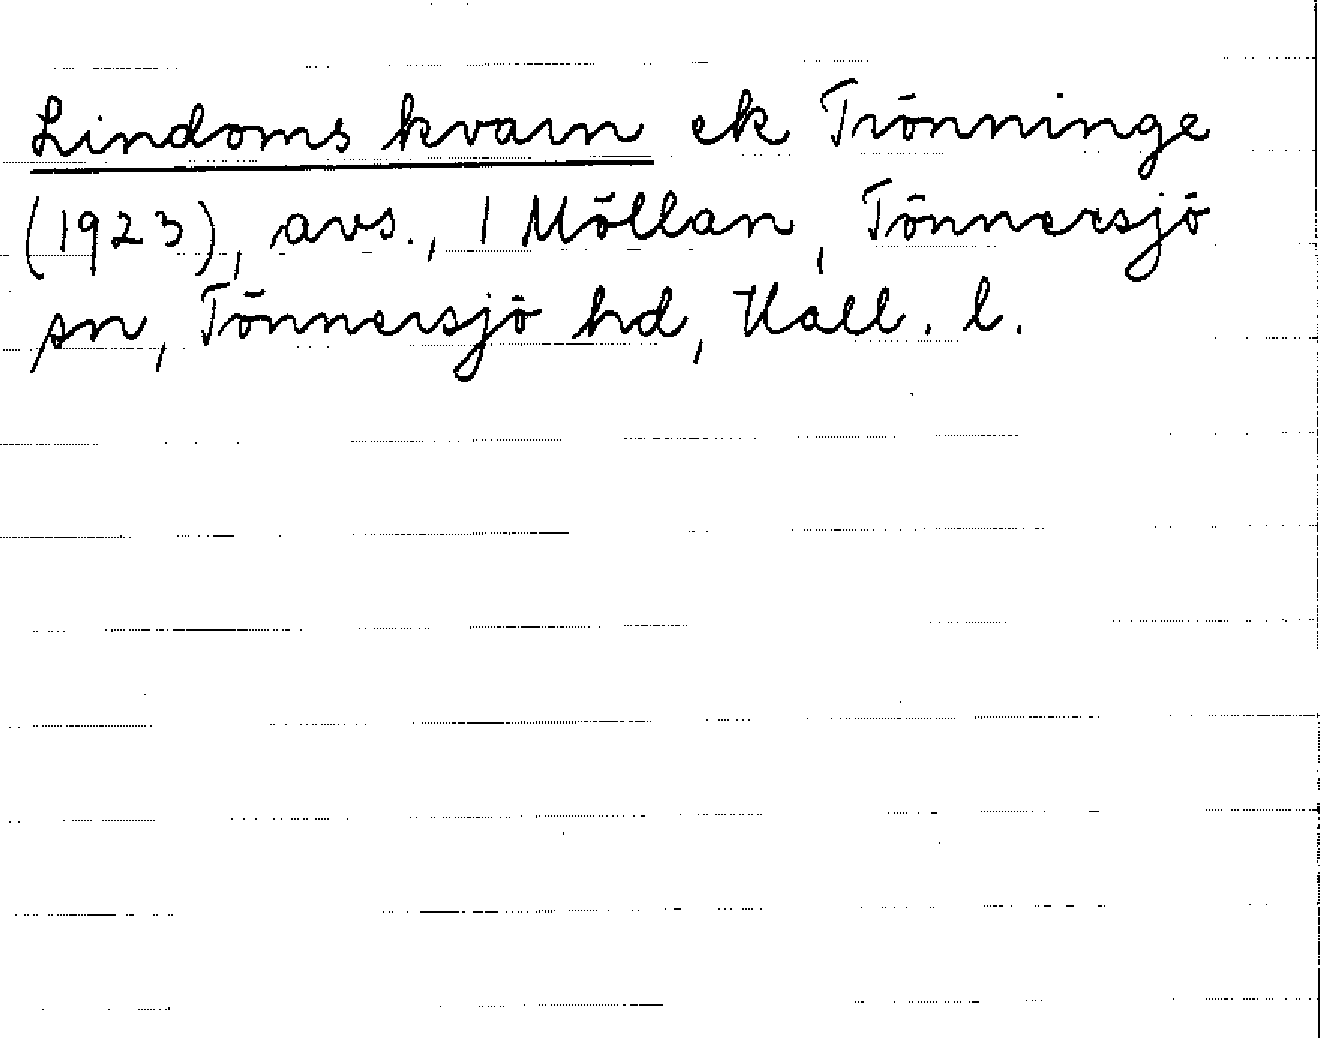 Lindoms kvarn ek Trönninge
(1923), avs., 1 Möllan, Tönnersjö
sn, Tönnersjö hd, Hall. l.